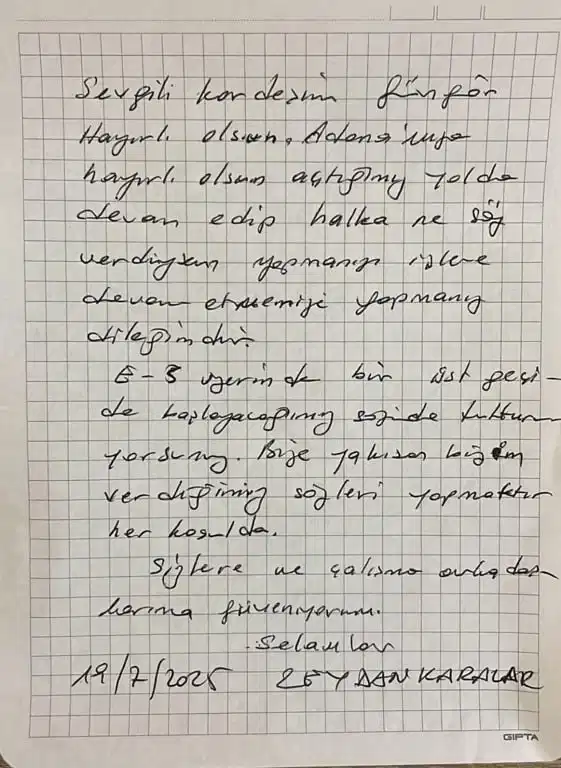 Sevgili kardeşim Güngör
Hayırlı olsun, Adana'mıza
hayırlı olsun açtığımız yolda
devam edip halka ne söz
verdiysem yapmanızı işlere
devam etmenizi yapmanız
dileğimdir.
E-5 üzerinde bir üst geçi-
de başlayacağımız sözünde tuttun
yorsunuz. Bize yakışan bizim
verdiğimiz sözleri yapmaktır
her koşulda.
Sizlere ve çalışma arkadaş-
larıma güveniyorum.
Selamlar
19/7/2025 ZEYDAN KARALAR
GIPTA